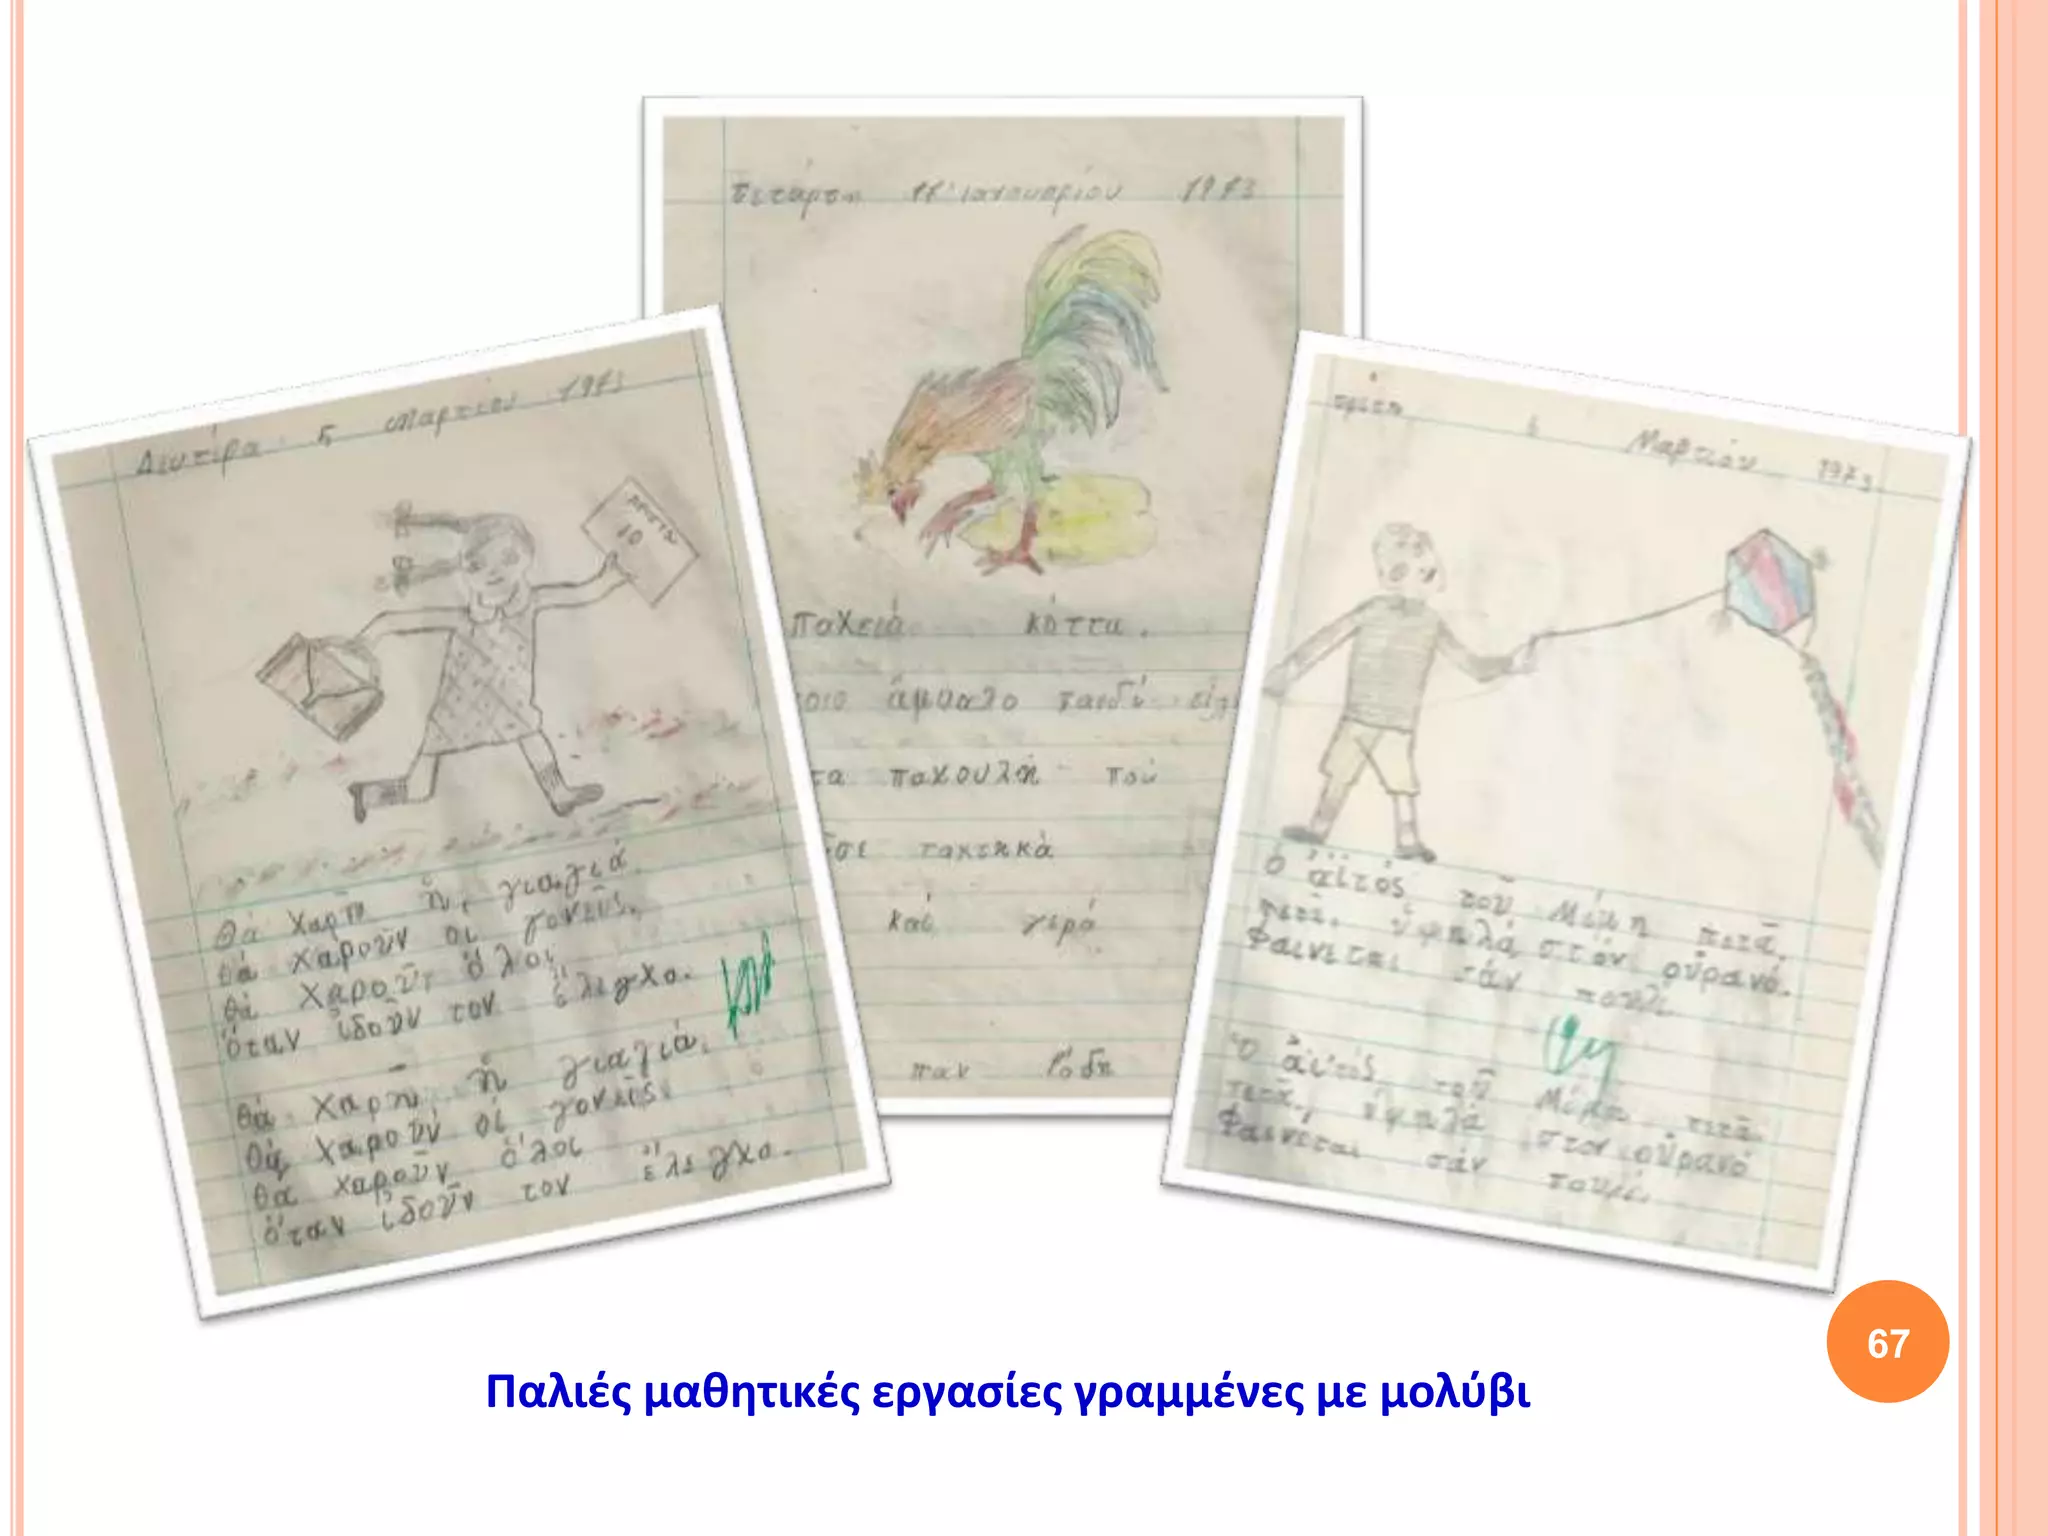 Δευτέρα 5 Μαρτίου 1973
ΑΡΙΣΤΑ
10
θά χαρῆ ἥ, γιαγιά.
θά χαροῦν οἱ γονεῖς.
θά χαροῦν ὅλοι
ὅταν ἰδοῦν τον ἔλεγχο.
θά χαρῆ ἥ γιαγιά.
θά χαροῦν οἱ γονεῖς.
θα χαροῦν ὅλοι
ὅταν ἰδοῦν τον ἔλεγχο.
Τετάρτη Ιανουαρίου 1973
παχειά κόττα.
ἄμυαλο παιδί
τα παχουλή πού
τακτικά
καί γερά
παν ῥόδη
Τρίτη Μαρτίου 1973
ὁ ἀϊτός τοῦ Μίμη πετᾶ.
πετᾶ, ὑψηλά στόν οὐρανό.
Φαίνεται σάν πουλί.
Ὁ ἀϊτός τοῦ Μίμη πετᾶ.
πετᾶ, ὑψηλά στον οὐρανό
Φαίνεται σάν πουλί.
67
Παλιές μαθητικές εργασίες γραμμένες με μολύβι